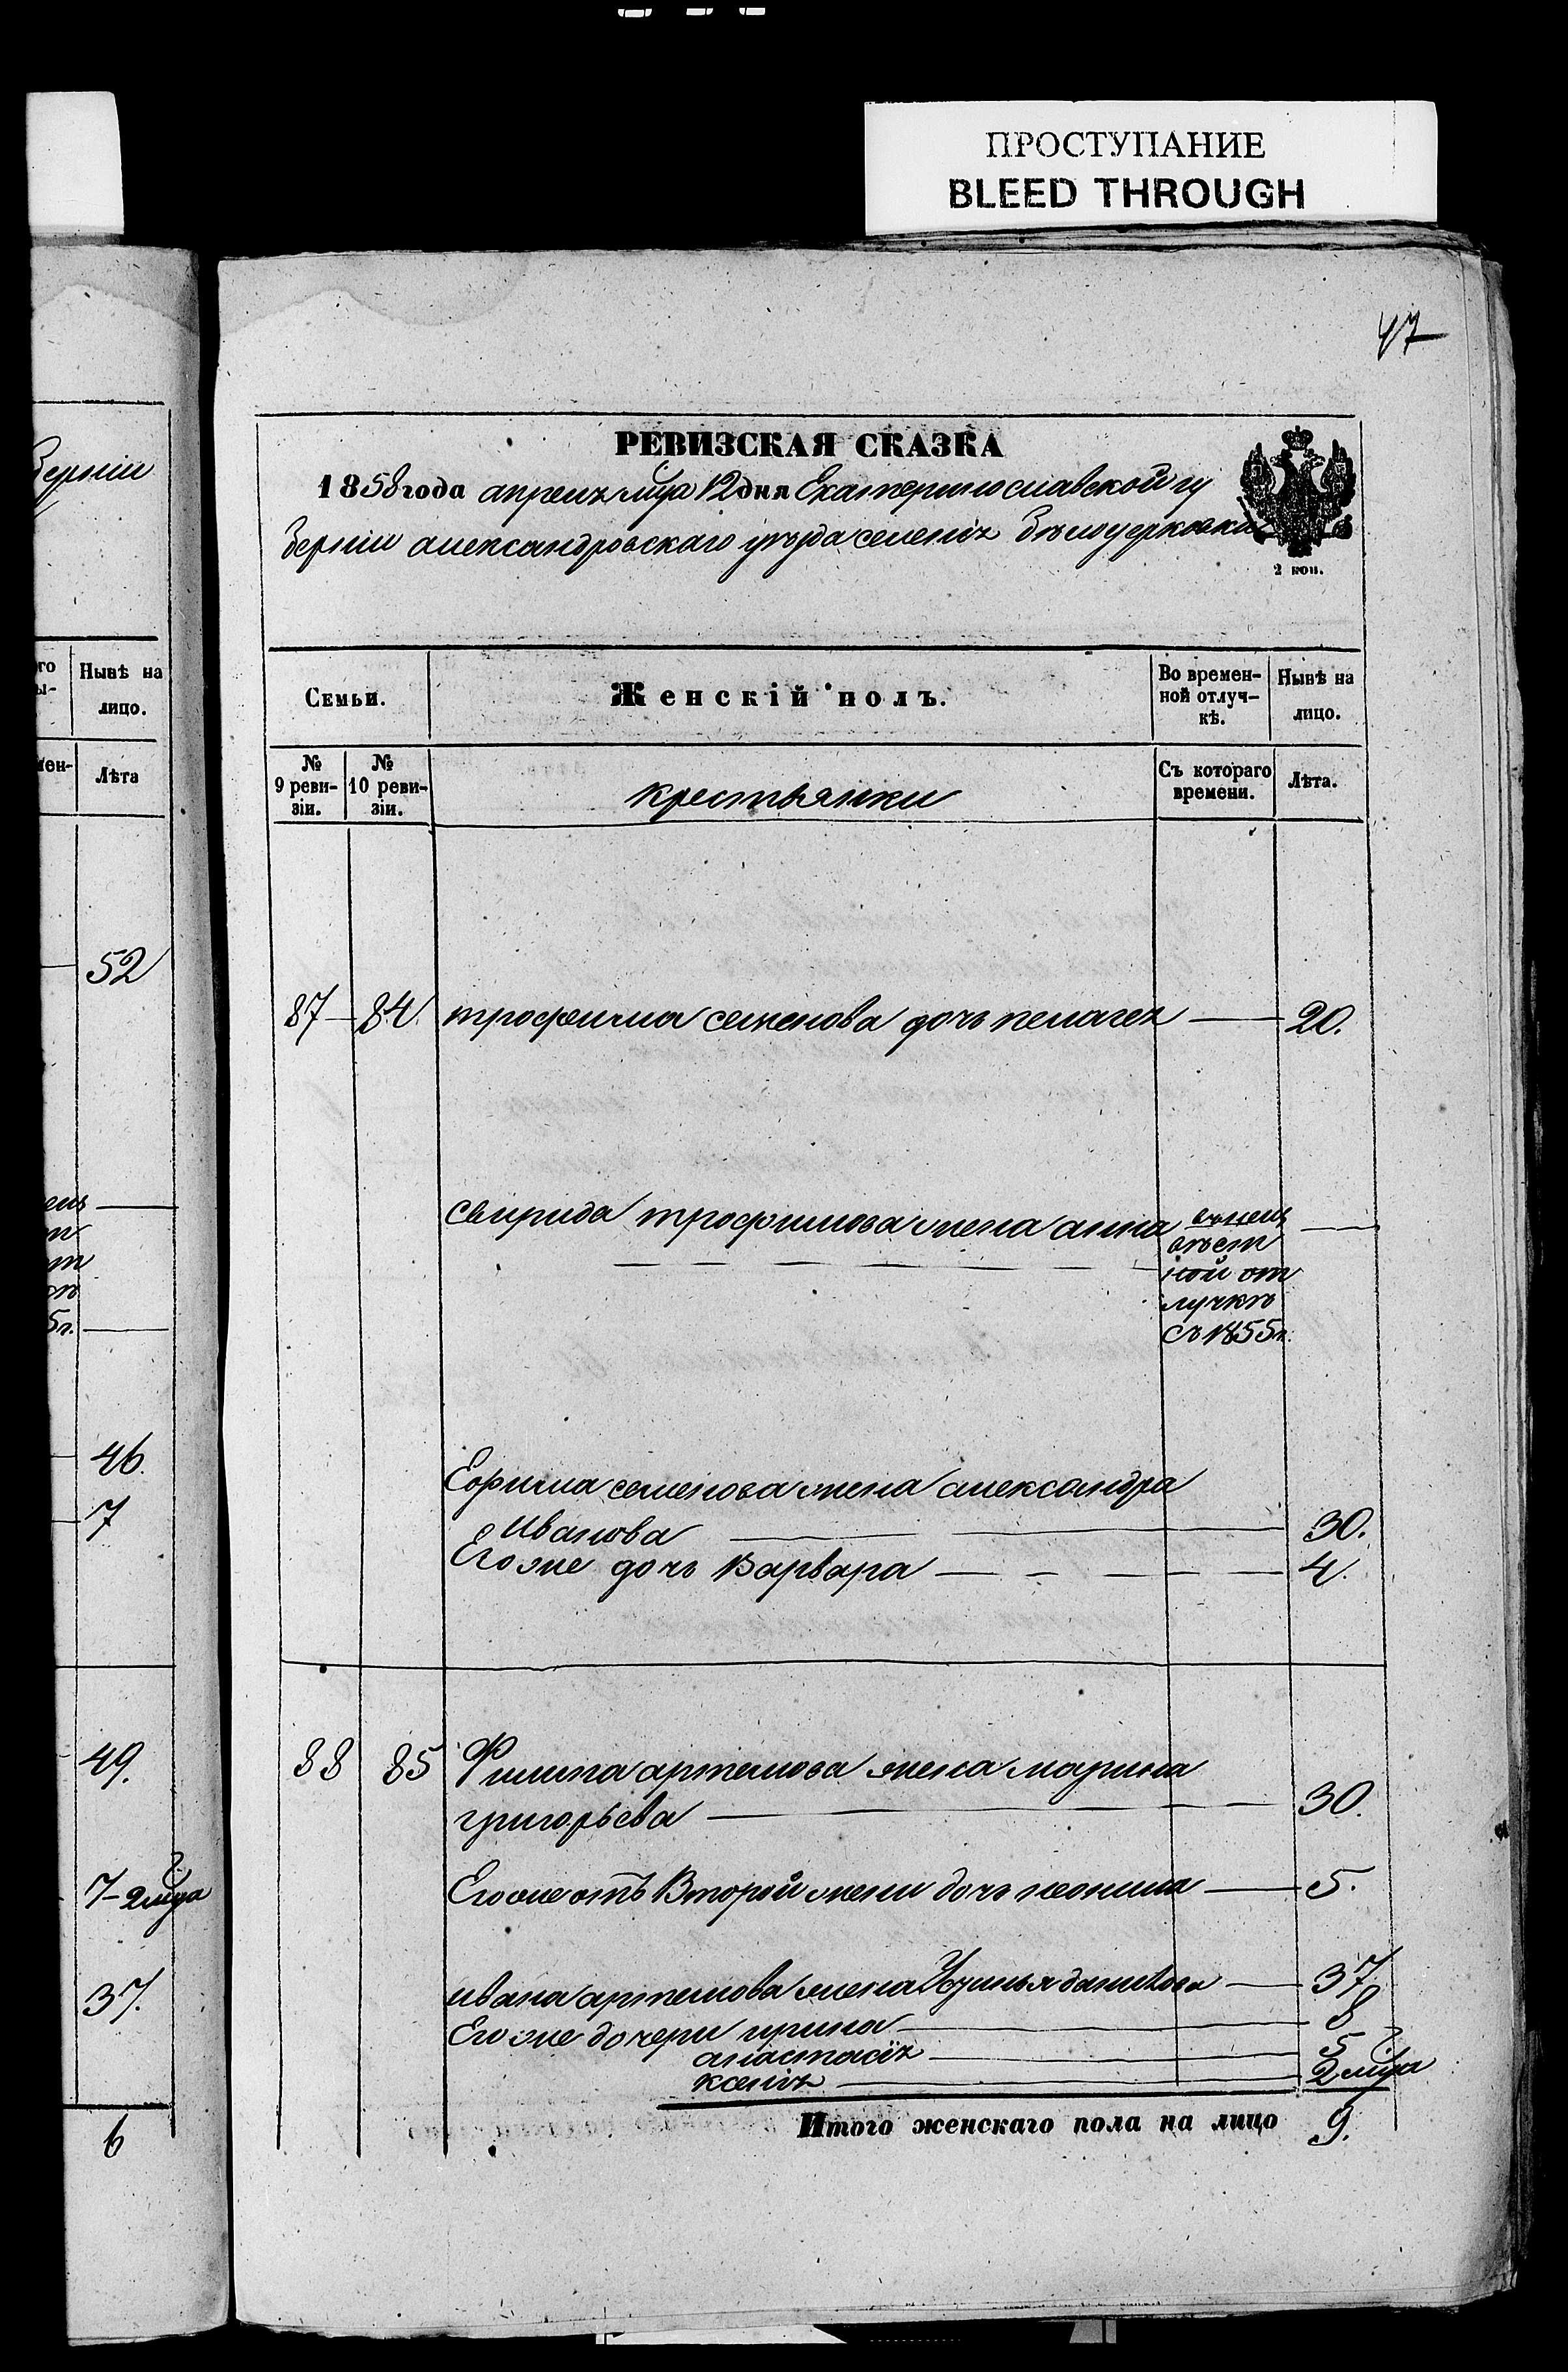 ПРОСТУПАНИЕ
BLEED THROUGH
47
РЕВИЗСКАЯ СКАЗКА
1858 года апреля мца 12 дня Екатеринославской гу
берніи александровскаго уѣзда селенія Бѣлоцерковка
2 коп.
Семьи.
Женскій полъ.
Во времен-
ной отлуч-
кѣ.
Нынѣ на
лицо.
№
9 реви-
зіи.
№
10 реви-
зіи.
крестьянки
Съ котораго
времени.
Лѣта.
87 — 84. трофима семенова дочь пелагея — 20.
свирида трофимова жена анна
ной от
лучкѣ
съ 1855 г.
Ефима семенова жена александра
Иванова — 30.
Его же дочь Варвара — 4.
88 85 Филипа артемова жена марина
григорьева — 30.
Его же отъ Второй жени дочь — 5.
ивана артемова жена Устинья данилова — 37
Его же дочери ирина — 8
анастасія — 5
ксенія — 2 мца
Итого женскаго пола на лицо 9.
берніи
Нынѣ на
лицо.
Лѣта
52
5 г.
46.
7
49.
7 - 2 мца
37.
6